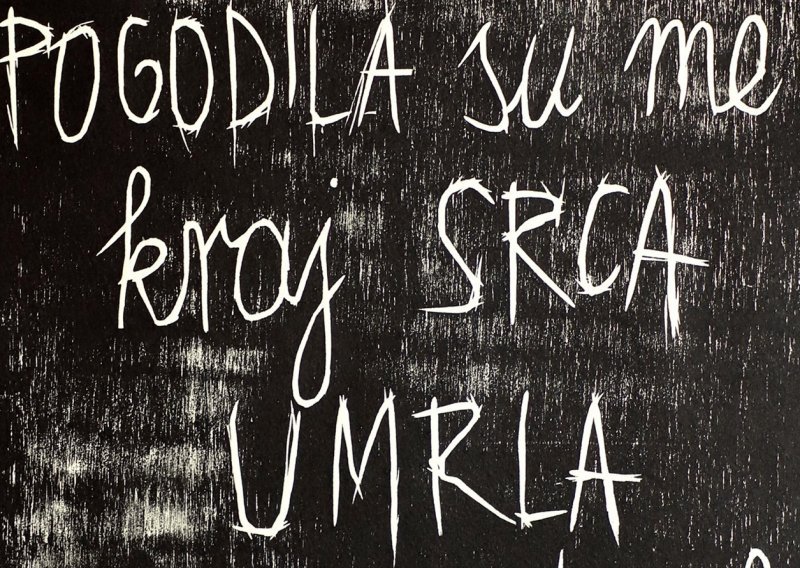 POGODILA su me
kraj SRCA
UMRLA